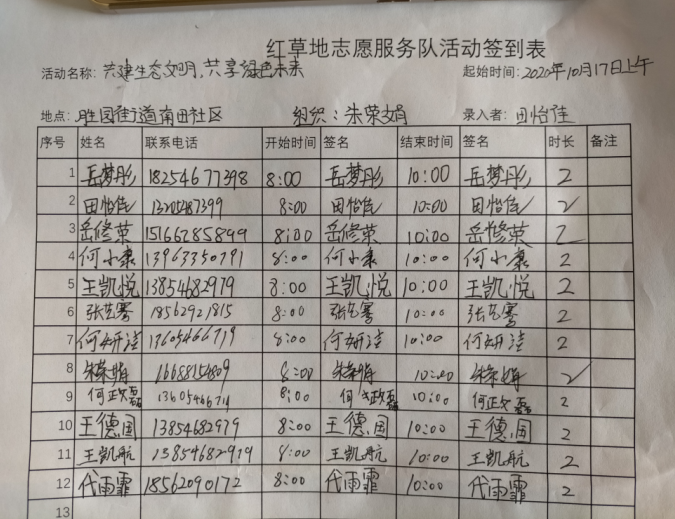 红草地志愿服务队活动签到表
活动名称：共建生态文明，共享绿色未来 起始时间：2020年10月17日上午
地点：胜园街道南田社区 组织：朱荣娟 录入者：田怡佳
序号 姓名 联系电话 开始时间 签名 结束时间 签名 时长 备注
1 岳梦彤 18254677398 8:00 岳梦彤 10:00 岳梦彤 2
2 田怡佳 13205487399 8:00 田怡佳 10:00 田怡佳 2
3 岳修荣 15166285899 8:00 岳修荣 10:00 岳修荣 2
4 何小康 13963350791 8:00 何小康 10:00 何小康 2
5 王凯悦 13854682979 8:00 王凯悦 10:00 王凯悦 2
6 张克骞 18562921815 8:00 张克骞 10:00 张克骞 2
7 何妍洁 13605466719 8:00 何妍洁 10:00 何妍洁 2
8 朱荣娟 8:00 朱荣娟 10:00 朱荣娟 2
9 何正文磊 8:00 10:00 2
10 王德国 13854682979 8:00 王德国 10:00 王德国 2
11 王凯航 13854682979 8:00 王凯航 10:00 王凯航 2
12 代雨霏 18562090172 8:00 代雨霏 10:00 代雨霏 2
13